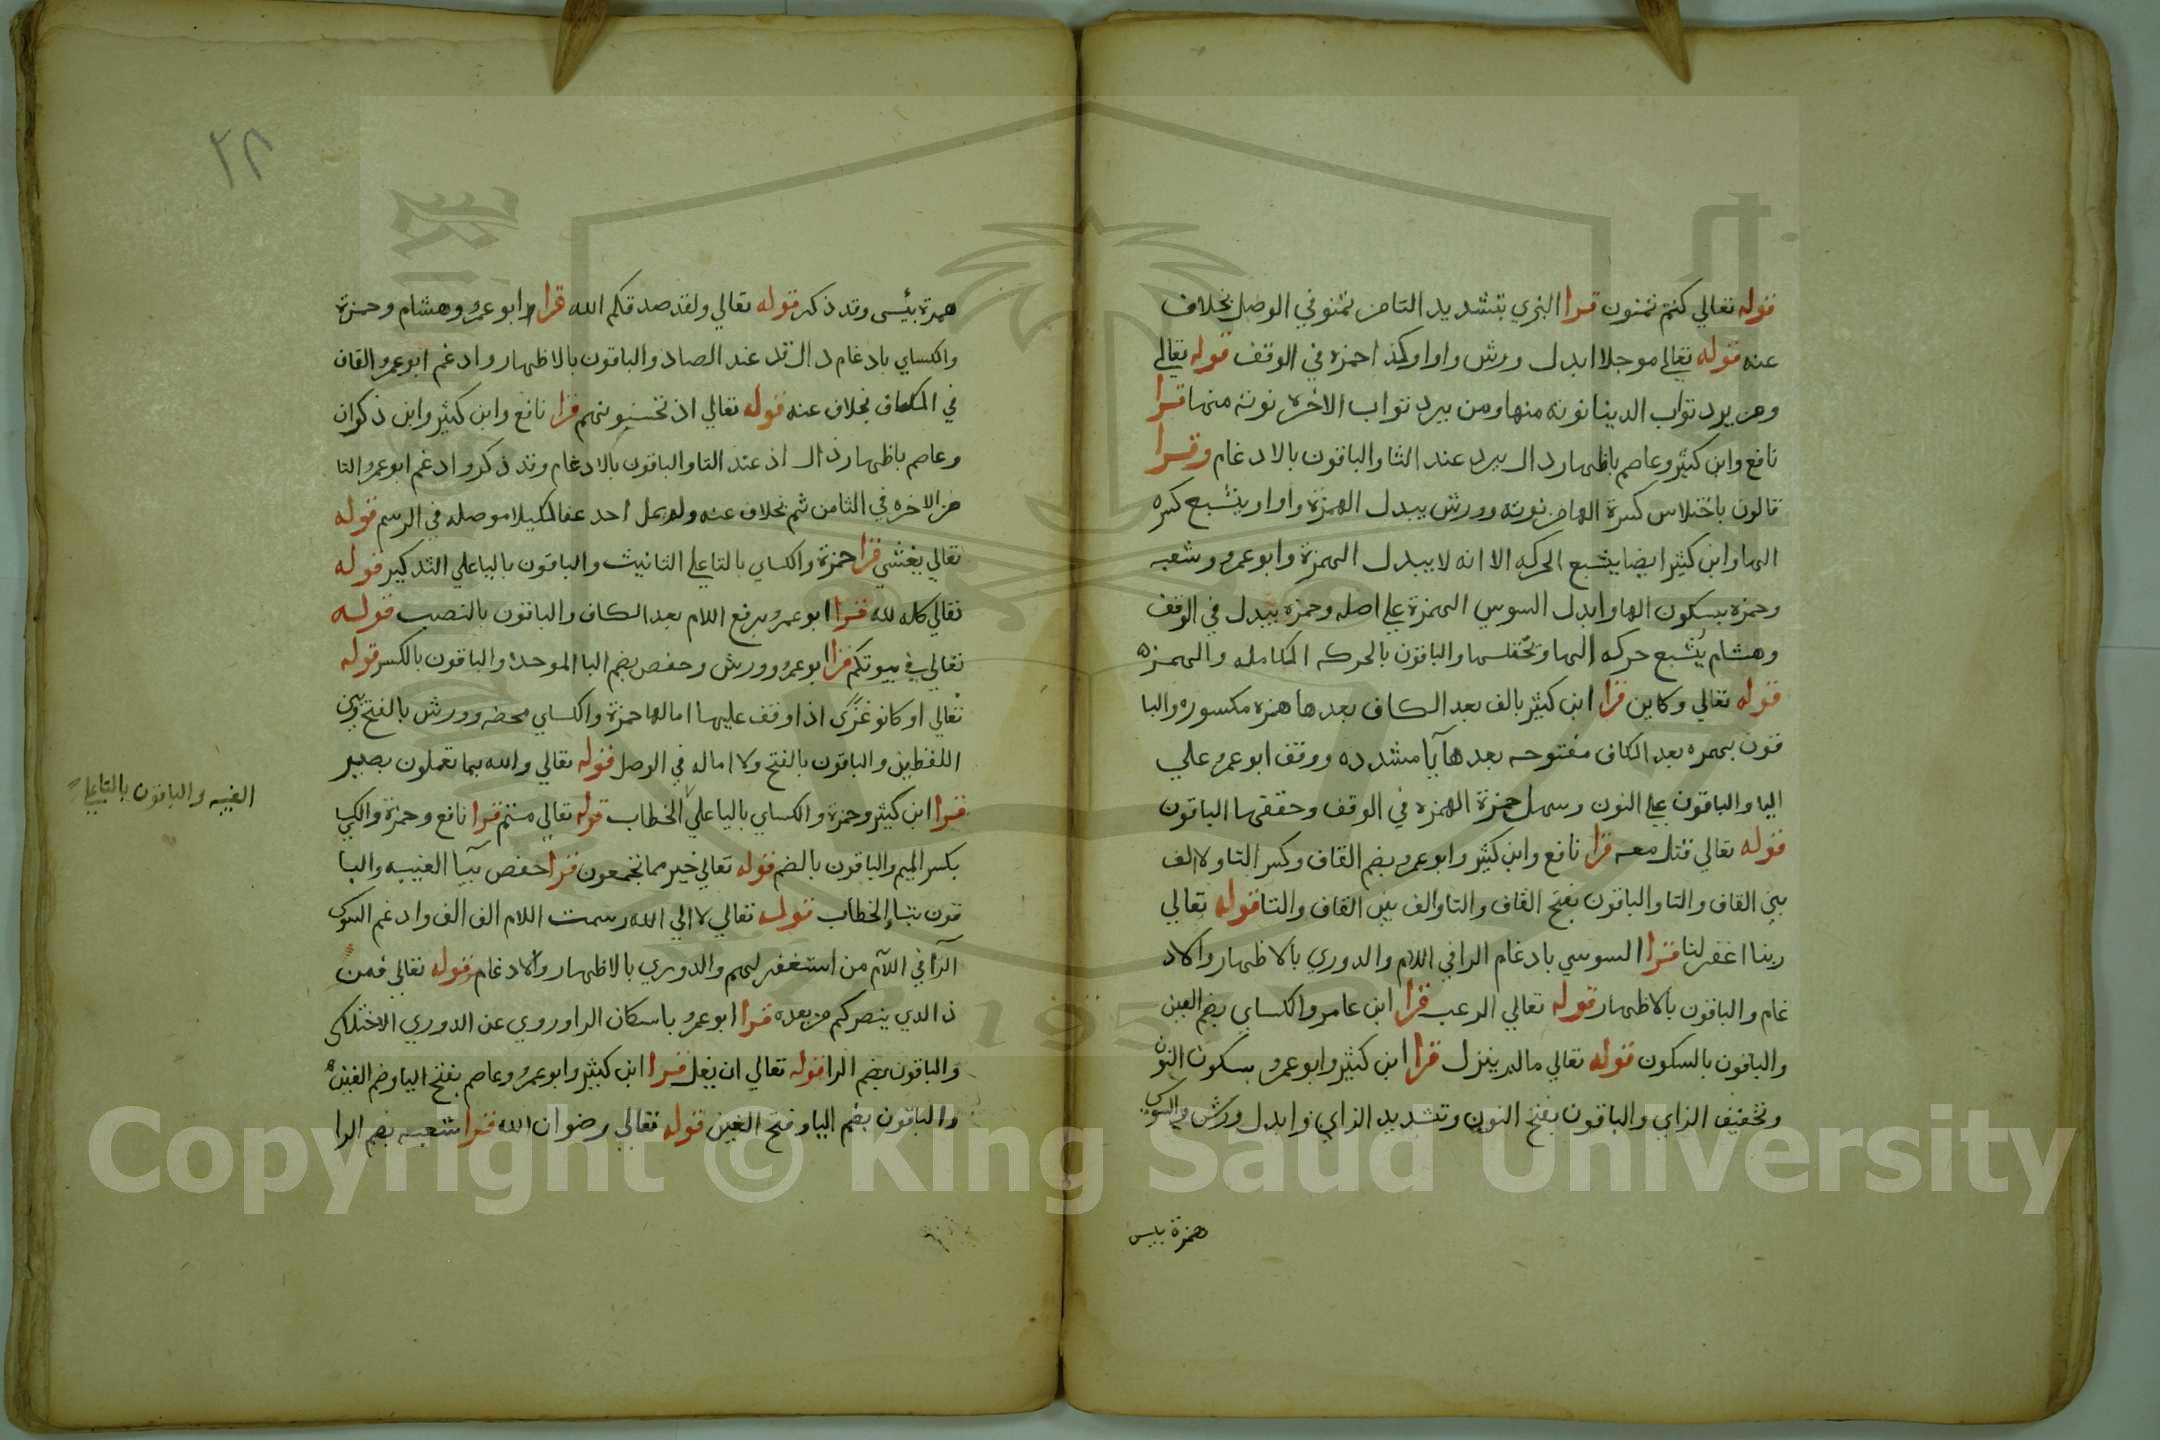 قوله تعالي كنتم تمنون قرا البزي بتشديد التا من تمنو في الوصل بخلاف
عنه قوله تعالي موجلا ابدل ورش واوا وكذا حمزه في الوقف قوله تعالي
ومن يرد ثواب الدينا نوته منها ومن يرد ثواب الاخره نوته منها قرا
نافع وابن كثير وعاصم باظهار دال يرد عند الثا والباقون بالادغام وقرا
قالون باختلاس كسرة الها من نوته وورش يبدل الهمزة واوا ويشبع كسره
الها وابن كثير ايضا يشبع الحركه الا انه لا يبدل الهمزة وابو عمرو وشعبه
وحمزه بسكون الها وابدل السوسي الهمزة علي اصله وحمزه يبدل في الوقف
وهشام يشبع حركه الها ويختلسها والباقون بالحركه الكامله والهمزه
قوله تعالي وكاين قرا ابن كثير بالف بعد الكاف بعدها همزه مكسوره والبا
قون بهمزه بعد الكاف مفتوحه بعدها يا مشدده ووقف ابو عمرو علي
اليا والباقون علي النون وسهل حمزة الهمزه في الوقف وحققها الباقون
قوله تعالي قتل معه قرا نافع وابن كثير وابو عمرو بضم القاف وكسر التا ولا الف
بين القاف والتا والباقون بفتح القاف والتا والف بين القاف والتا قوله تعالي
ربنا اغفر لنا قرا السوسي بادغام الرا في اللام والدوري بالاظهار والاد
غام والباقون بالاظهار قوله تعالي الرعب قرا ابن عامر والكساي بضم العين
والباقون بالسكون قوله تعالي مالم ينزل قرا ابن كثير وابو عمرو بسكون النون
وتخفيف الزاي والباقون بفتح النون وتشديد الزاي وابدل ورش والسوسي
همزة بيس
٢٨
همزة بئسى وقد ذكر قوله تعالي ولقد صدقكم الله قرا ابو عمرو وهشام وحمزة
والكساي بادغام دال قد عند الصاد والباقون بالاظهار وادغم ابو عمرو القاف
في الكاف بخلاف عنه قوله تعالي اذ تحسونهم قرا نافع وابن كثير وابن ذكوان
وعاصم باظهار ذال اذ عند التا والباقون بالادغام وقد ذكر وادغم ابو عمرو التا
من الاخره في الثا من ثم بخلاف عنه ولم يمل احد عفا لكيلا موصله في الرسم قوله
تعالي يغشي قرا حمزة والكساي بالتا علي التانيث والباقون باليا علي التدكير قوله
تعالي كله لله قرا ابو عمرو برفع اللام بعد الكاف والباقون بالنصب قوله
تعالي في بيوتكم قرا ابو عمرو وورش وحفص بضم البا الموحدة والباقون بالكسر قوله
تعالي او كانو غزًي اذا وقف عليها امالها حمزة والكساي محضه وورش بالفتح وبين
اللفظين والباقون بالفتح ولا اماله في الوصل قوله تعالي والله بما تعملون بصير
قرا ابن كثير وحمزة والكساي باليا علي الخطاب قوله تعالي متم قرا نافع وحمزة والكسا
الغيبه والباقون بالتا علي
بكسر الميم والباقون بالضم قوله تعالي خير مما تجمعون قرا حفص بيا الغيبه والبا
قون بتاء الخطاب قوله تعالي لا الي الله رسمت اللام الف الف وادغم السوسي
الرا في اللام من استغفر لهم والدوري بالاظهار والادغام قوله تعالي فمن
ذا الدي ينصركم من بعده قرا ابو عمرو باسكان الرا وروي عن الدوري الاختلاس
والباقون بضم الرا قوله تعالي ان يغل قرا ابن كثير وابو عمرو وعاصم بفتح اليا وضم الغين
والباقون بضم اليا وفتح الغين قوله تعالي رضوان الله قرا شعبه بضم الرا
Copyright © King Saud University
1957